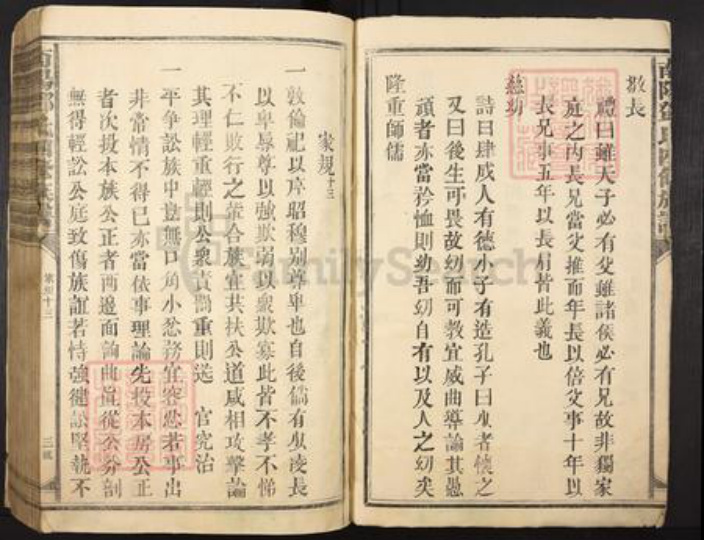 敬長
禮曰雖天子必有父雖諸侯必有兄故非獨家
庭之內長兄當父推而年長以倍父事十年以
長兄事五年以長肩皆此義也
慈幼
詩曰肆成人有德小子有造孔子曰少者懷之
又曰後生可畏故幼而可教宜威曲導諭其愚
頑者亦當矜恤則幼吾幼自有以及人之幼矣
隆重師儒
家規十三
一敦倫祀以序昭穆别尊卑也自後倘有少凌長
以卑辱尊以強欺弱以衆欺寡此皆不孝不悌
不仁敗行之輩合族宜共扶公道咸相攻擊論
其理輕重輕則公衆責罰重則送 官究治
一平爭訟族中豈無口角小忿務宜容忍若事出
非常情不得已亦當依事理論先投本房公正
者次投本族公正者兩邊面詢曲直從公分剖
無得輕訟公庭致傷族誼若恃強健訟堅執不
家規十三
FamilySearch